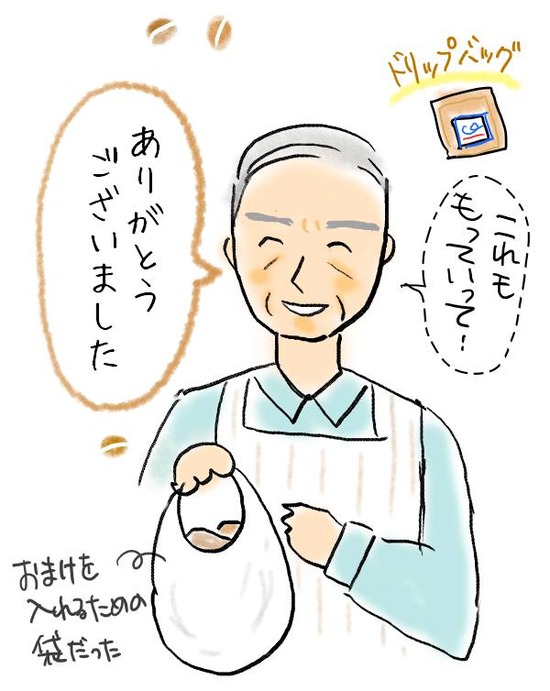 ドリップバッグ
ありがとう
ございました
これも
もっていって…
おまけを
入れるための
袋だった